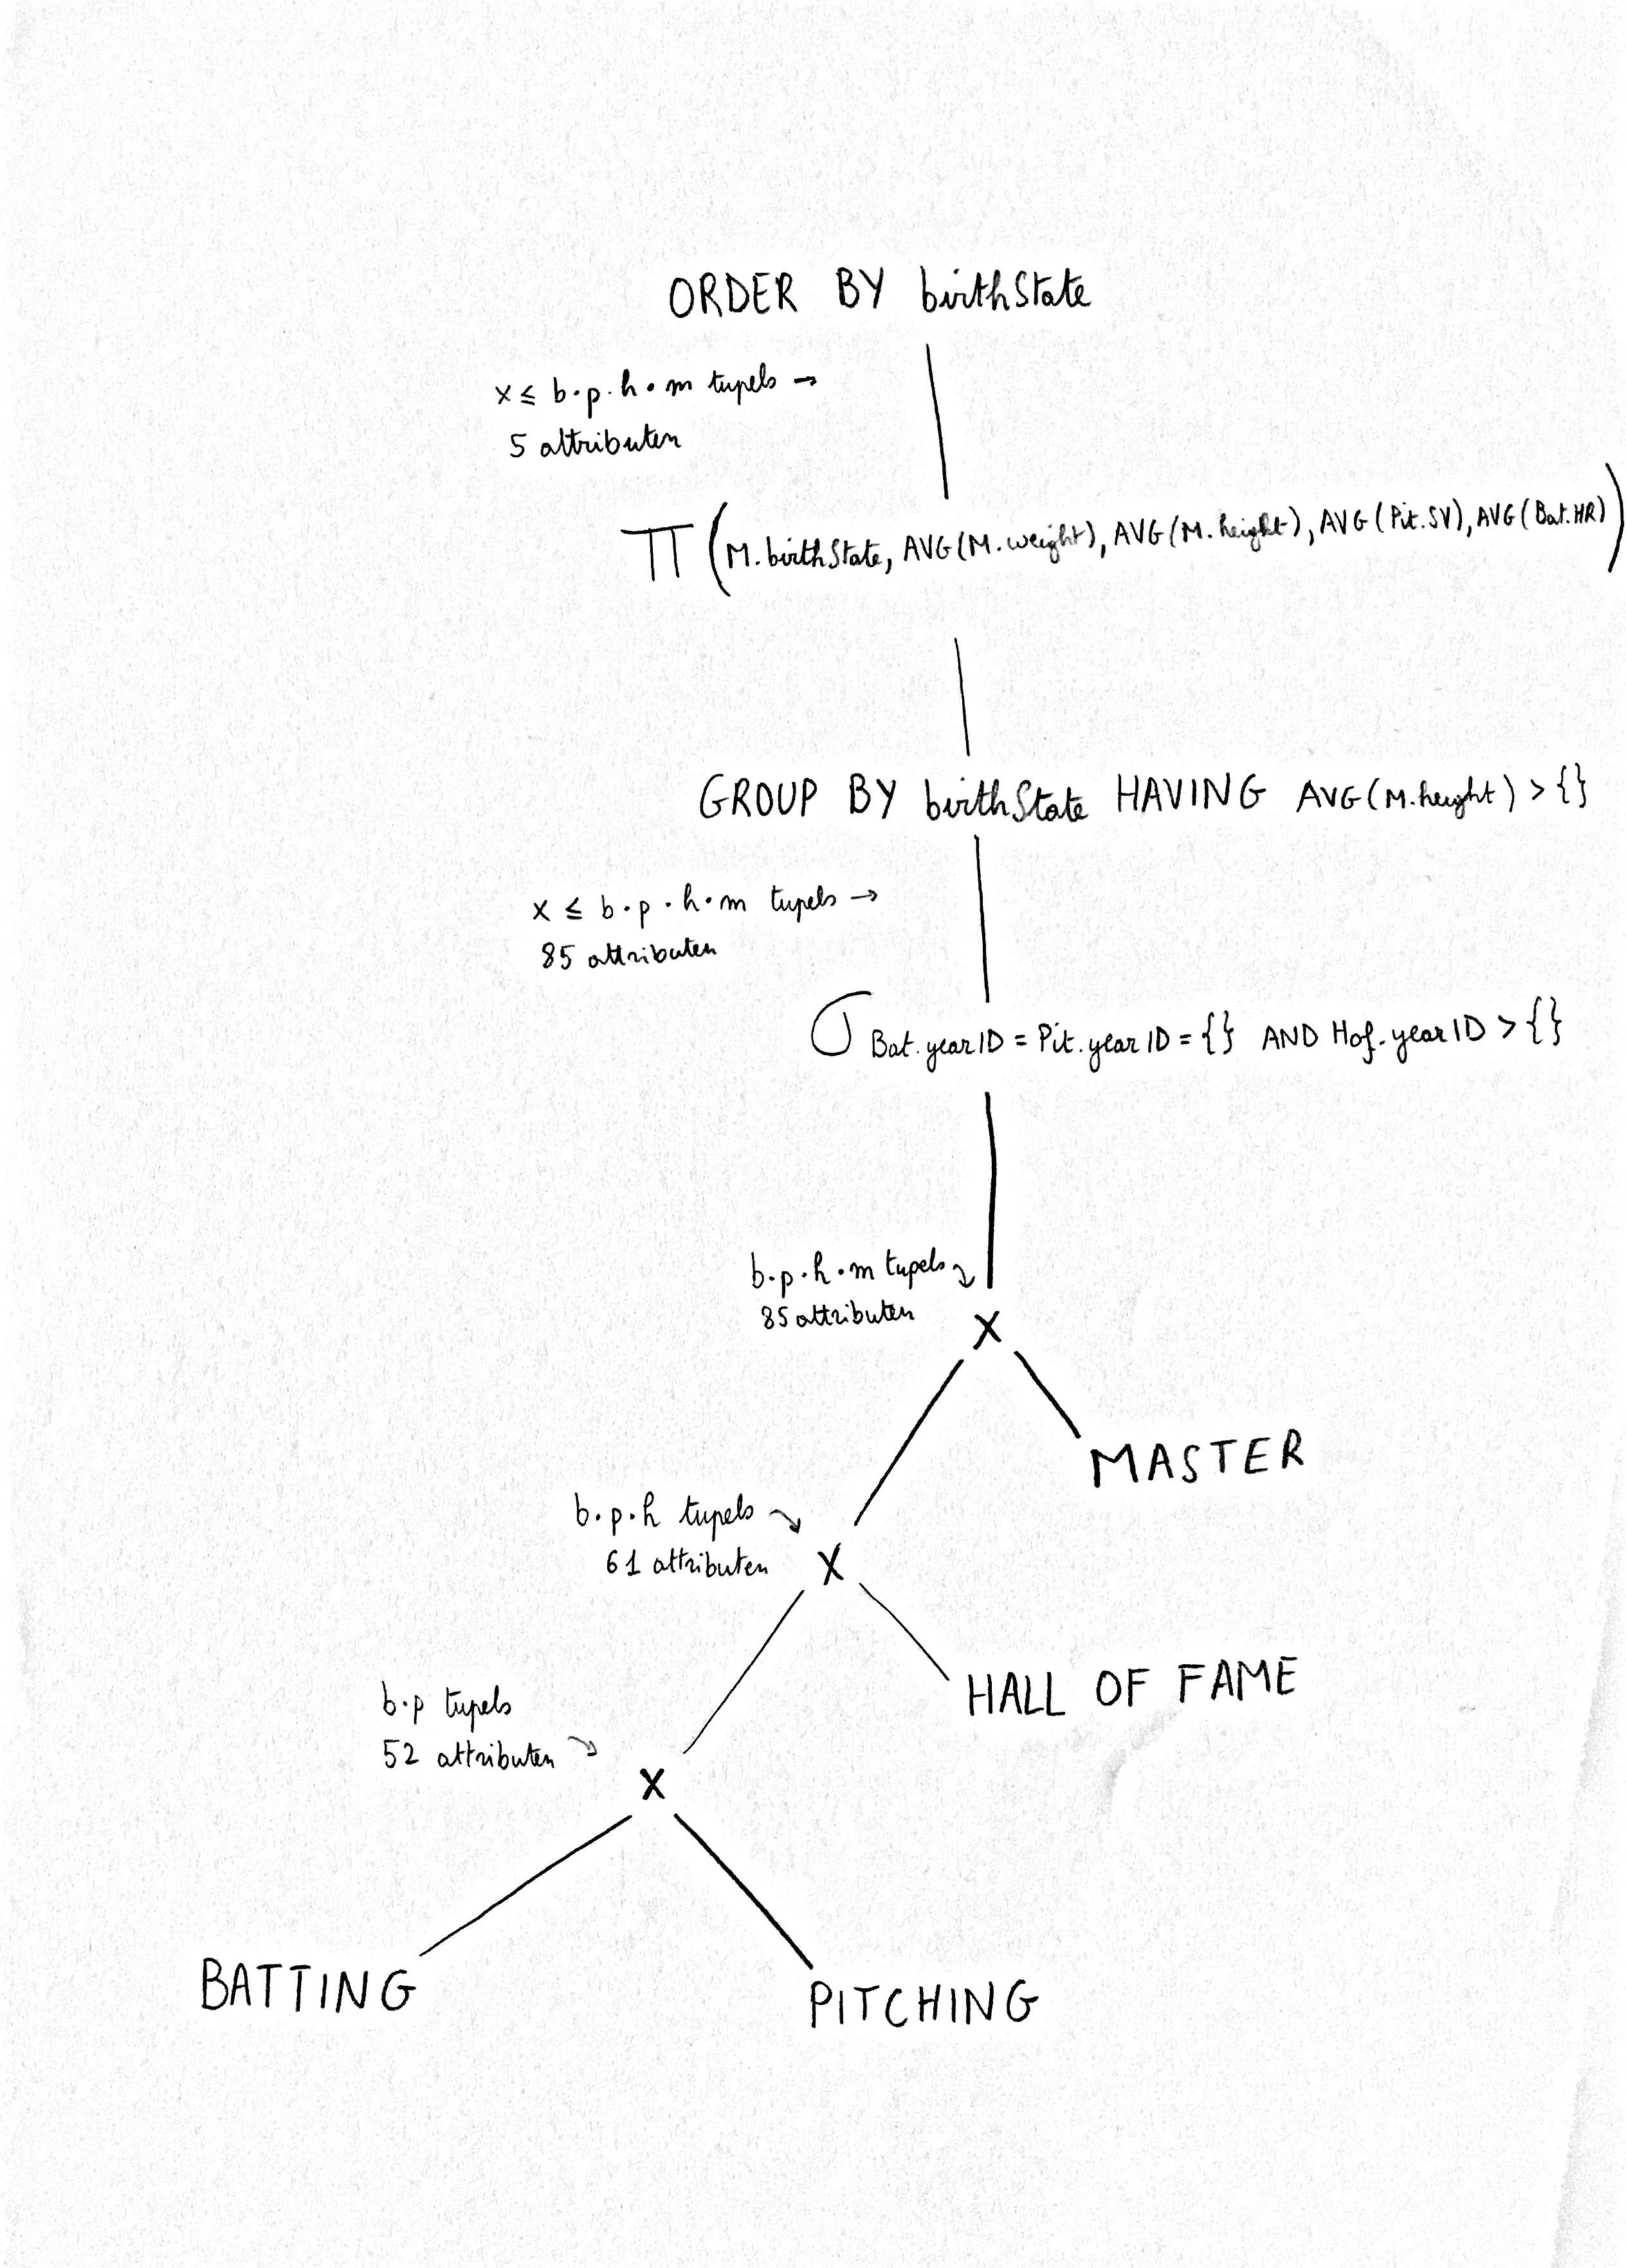 ORDER BY birthState
x ≤ b·p·h·m tupels →
5 attributen
π (M.birthState, AVG(M.weight), AVG(M.height), AVG(Pit.SV), AVG(Bat.HR))
GROUP BY birthState HAVING AVG(M.height) > {}
x ≤ b·p·h·m tupels →
85 attributen
σ Bat.yearID = Pit.yearID = {} AND Hof.yearID > {}
b·p·h·m tupels
85 attributen
X
MASTER
b·p·h tupels
61 attributen
X
HALL OF FAME
b·p tupels
52 attributen
X
BATTING
PITCHING